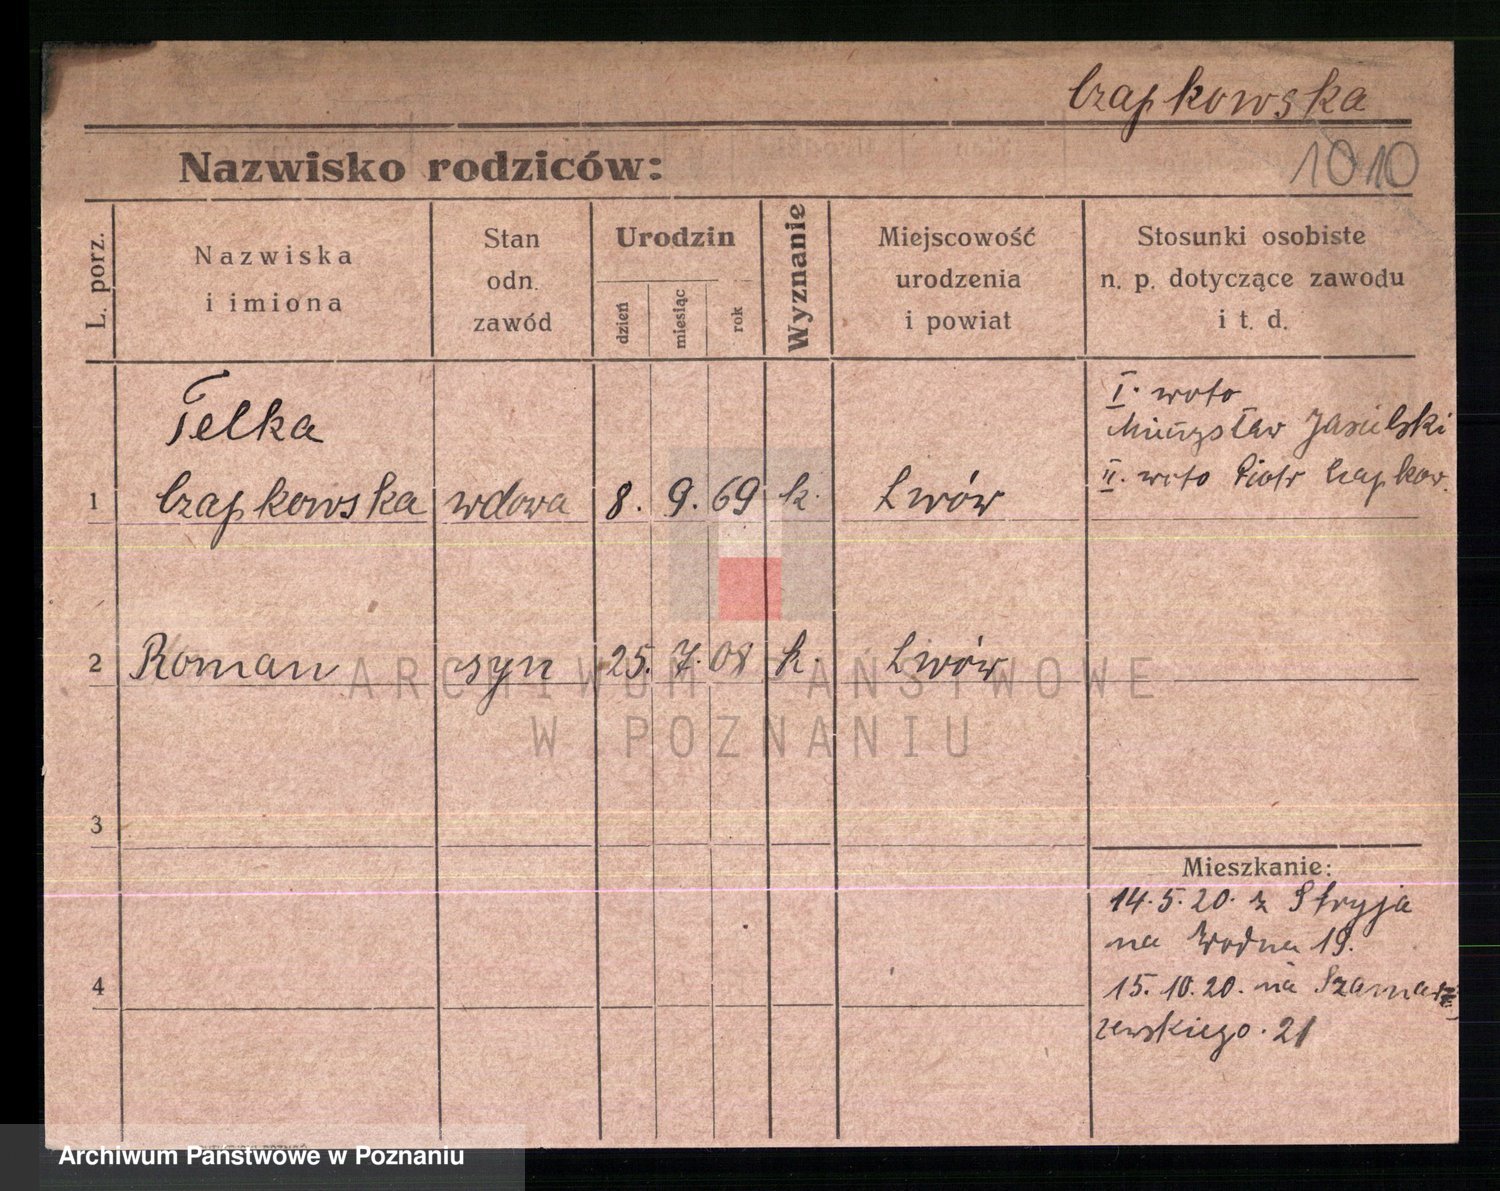 Czapkowska
1010
Nazwisko rodziców:
L. porz.
Nazwiska
i imiona
Stan
odn.
zawód
Urodzin
dzień
miesiąc
rok
Wyznanie
Miejscowość
urodzenia
i powiat
Stosunki osobiste
n. p. dotyczące zawodu
i t. d.
I. voto
Jasielski
II. voto Piotr Czapkow.
Telka
1 Czapkowska wdowa 8. 9. 69 k. Lwów
2 Roman syn 25. 7. 08 k. Lwów
ARCHIWUM PAŃSTWOWE
W POZNANIU
3
Mieszkanie:
14.5.20. z Stryja
na Wodna 19.
4
15.10.20. na Szamar
zewskiego. 21
Archiwum Państwowe w Poznaniu